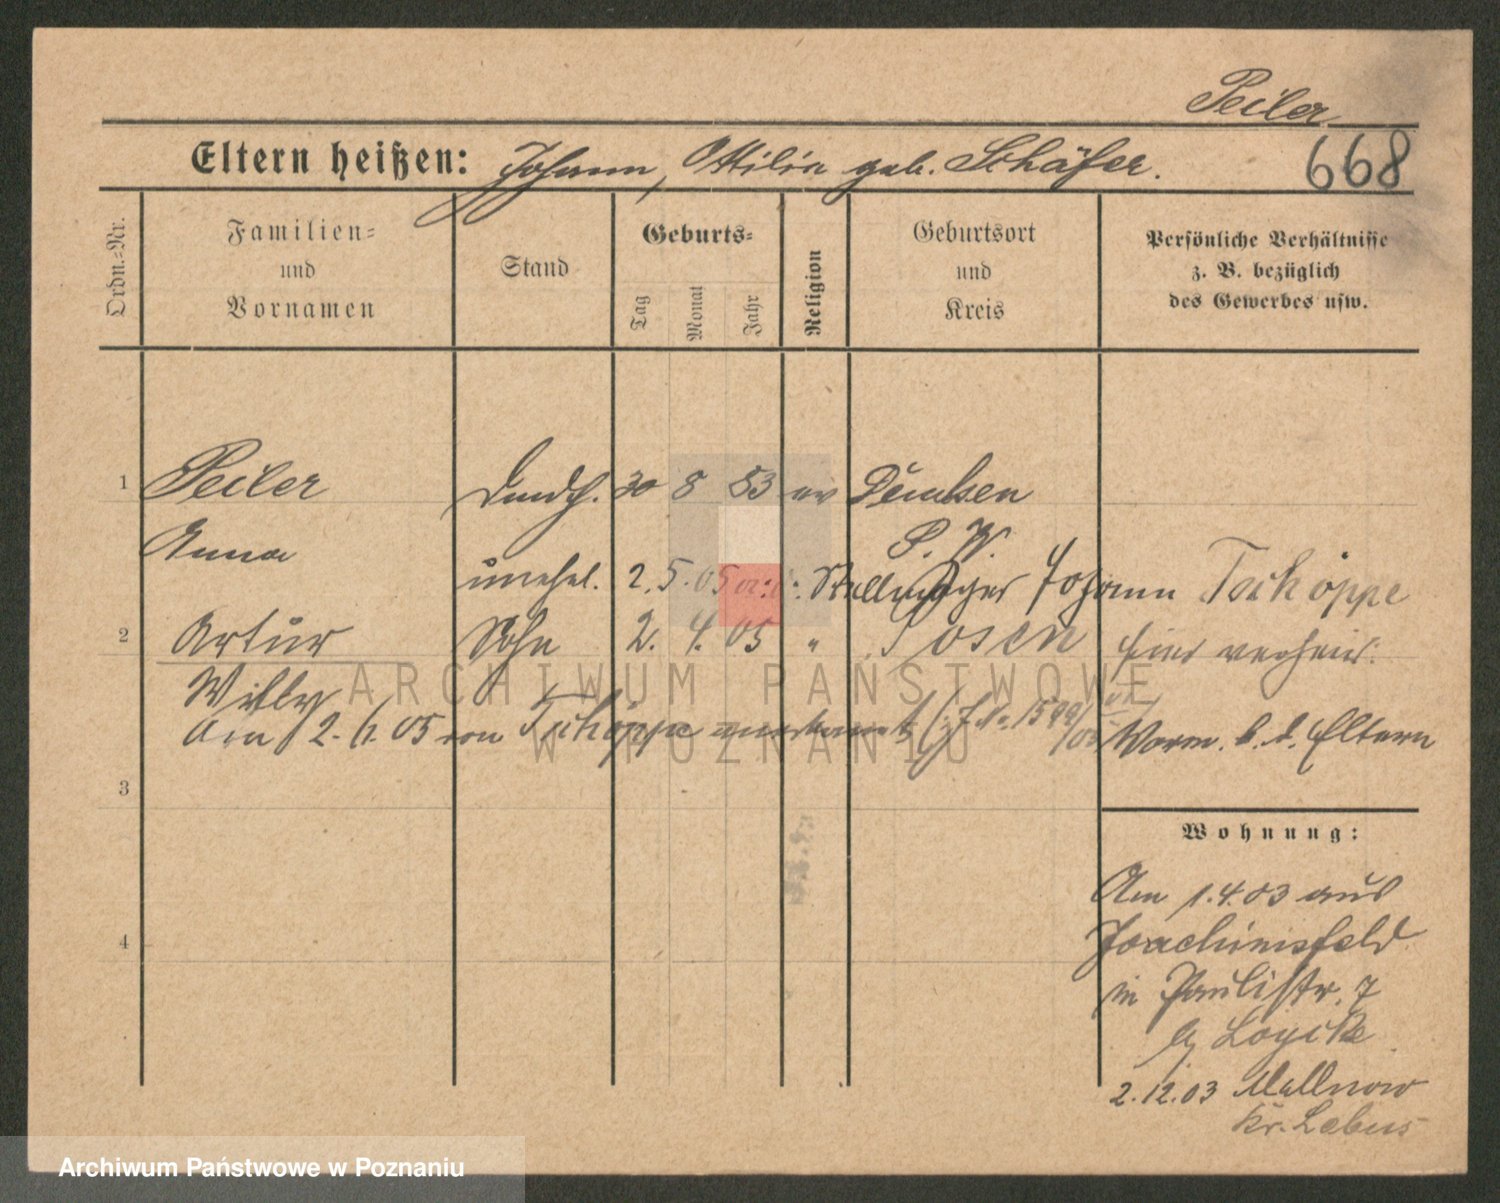 Peiler
Eltern heißen: Johann, Ottilie geb. Schäfer.
668
Ordn.-Nr.
Familien-
und
Vornamen
Stand
Geburts-
Tag
Monat
Jahr
Religion
Geburtsort
und
Kreis
Persönliche Verhältnisse
z. B. bezüglich
des Gewerbes usw.
1 Peiler 30 8 83 ev
Anna
S. W.
unehel. 2. 5. 05 Johann Tschöppe
2 Artur Sohn 2. 4. 05 " Posen
hier verheir.
Willy
Am 12. 6. 05 von Tschöppe anerkannt
Vorm. b. d. Eltern
3
4
Wohnung:
Am 1.4.03 aus
Joachimsfeld
in Paulistr. 7
2.12.03 Mallnow
Kr. Lebus
ARCHIWUM PAŃSTWOWE
W POZNANIU
Archiwum Państwowe w Poznaniu